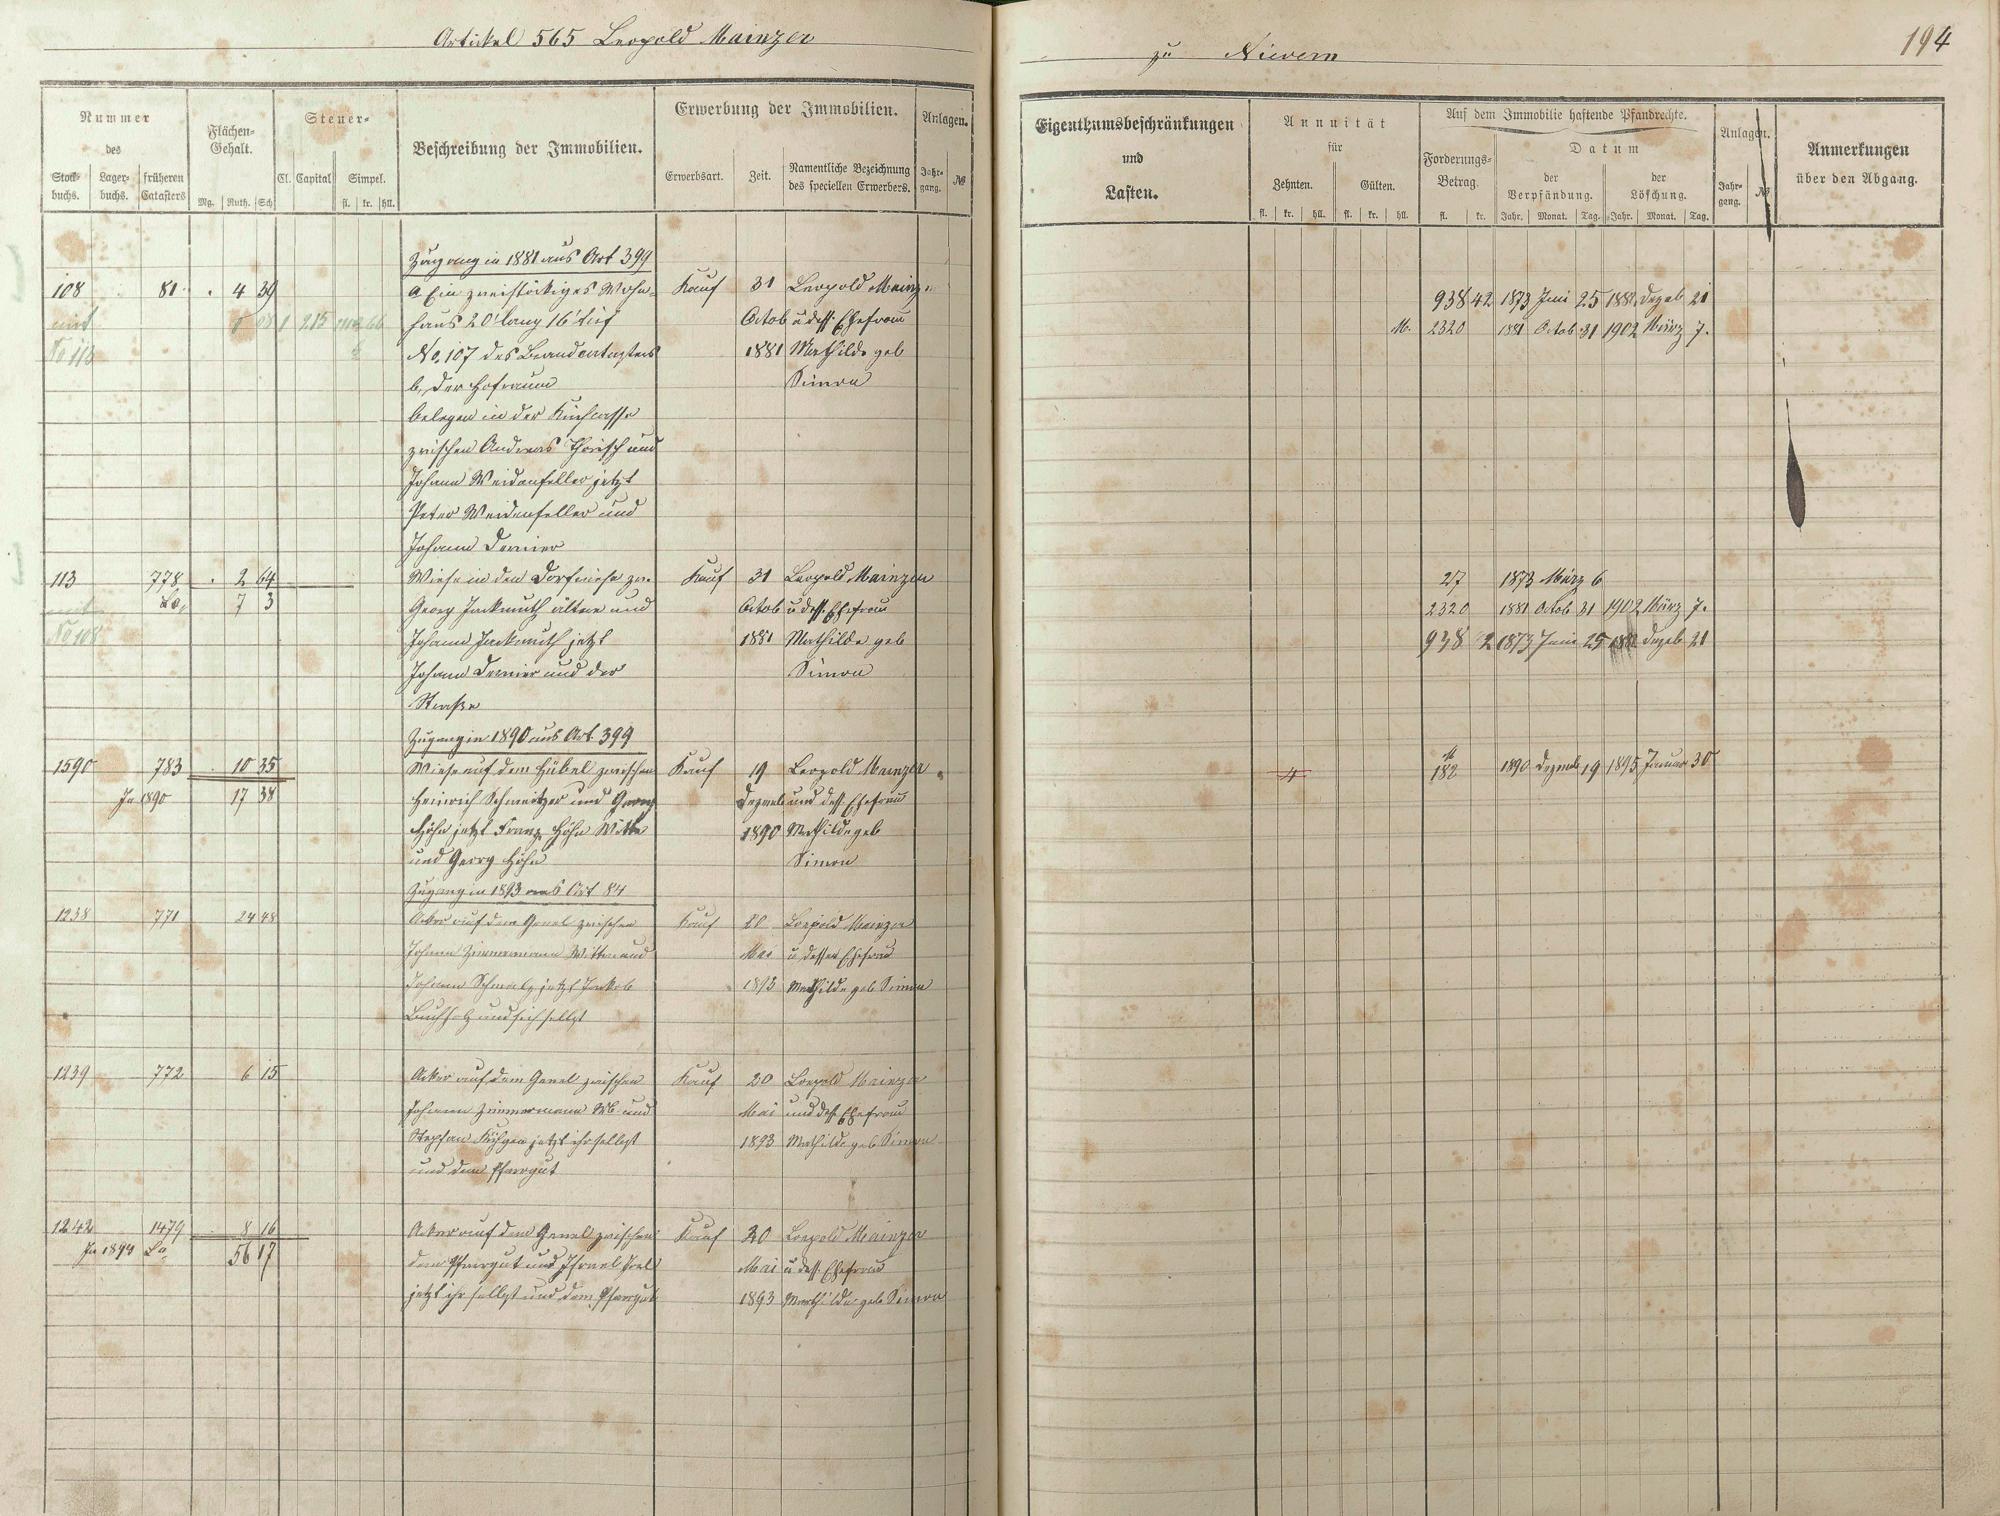 Artickel 565 Leopold Mainzer
Nummer
des
Stock-
buchs.
Lager-
buchs.
früheren
Catasters
Flächen-
Gehalt.
Mg. Ruth. Sch
Steuer-
Cl. Capital Simpel.
fl. kr. hll.
Beschreibung der Immobilien.
Erwerbung der Immobilien.
Erwerbsart. Zeit. Namentliche Bezeichnung
des speciellen Erwerbers.
Anlagen.
Jahr-
gang. №
Zugang in 1881 aus Art 399
108 81 4 39 a Ein zweistöckiges Wohn- Kauf 31 Leopold Mainz.
mit 215 haus 20' lang 16' tief Octob u dess. Ehefrau
No 113 No. 107 des Brandcatasters 1881 Mathilde geb
b, der Hofraum Simon
belegen in der
zwischen Andreas und
Johann Weidenfeller jetzt
Peter Weidenfeller und
Johann
113 778 2 64 Wiese in den Dorfwiese zw. Kauf 31 Leopold Mainzer
La, 7 3 Georg Jackmuth älter und Octob u dess. Ehefrau
No 108 Johann Jackmuth jetzt 1881 Mathilde geb
Johann und der Simon
Straße
Zugang in 1890 aus Art. 399
1590 783 10 35 Wiese auf dem Hübel zwischen Kauf 19 Leopold Mainzer
In 1890 17 38 Heinrich Schweitzer und Georg Dezemb und dess Ehefrau
Höhn jetzt Franz Höhn Wittw 1890 Mathilde geb
und Georg Höhn Simon
Zugang in 1893 aus Art 84
1238 771 24 48 Acker auf dem zwischen Kauf 20 Leopold Mainzer
Johann Zimmermann Wittw und Mai u dessen Ehefrau
Johann Schmalz jetzt Jakob 1893 Mathilde geb Simon
Buchholz und sich selbst
1239 772 6 15 Acker auf dem zwischen Kauf 20 Leopold Mainzer
Johann Zimmermann Wb und Mai und dess Ehefrau
Stephan jetzt ihr selbst 1893 Mathilde geb Simon
und dem Pfarrgut
1242 1479 8 16 Acker auf dem zwischen Kauf 20 Leopold Mainzer
In 1894 La 56 17 dem Pfarrgut und Israel Mai u dess. Ehefrau
jetzt ihr selbst und dem Pfarrgut 1893 Mathilde geb Simon
zu Nievern
194
Eigenthumsbeschränkungen
und
Lasten.
Annuität
für
Zehnten. Gülten.
fl. kr. hll. fl. kr. hll.
Auf dem Immobilie haftende Pfandrechte.
Forderungs-
Betrag.
fl. kr.
Datum
der
Verpfändung.
Jahr. Monat. Tag.
der
Löschung.
Jahr. Monat. Tag.
Anlagen.
Jahr-
gang. №
Anmerkungen
über den Abgang.
938 42 1873 Juni 25 1882 Dezeb 21
M. 2320 1881 Octob 31 1902 März 7.
27 1873 März 6
2320 1881 Octob 31 1902 März 7.
938 42 1873 Juni 25 1882 Dezeb 21
4 182 1890 Dezemb 19 1895 Januar 30